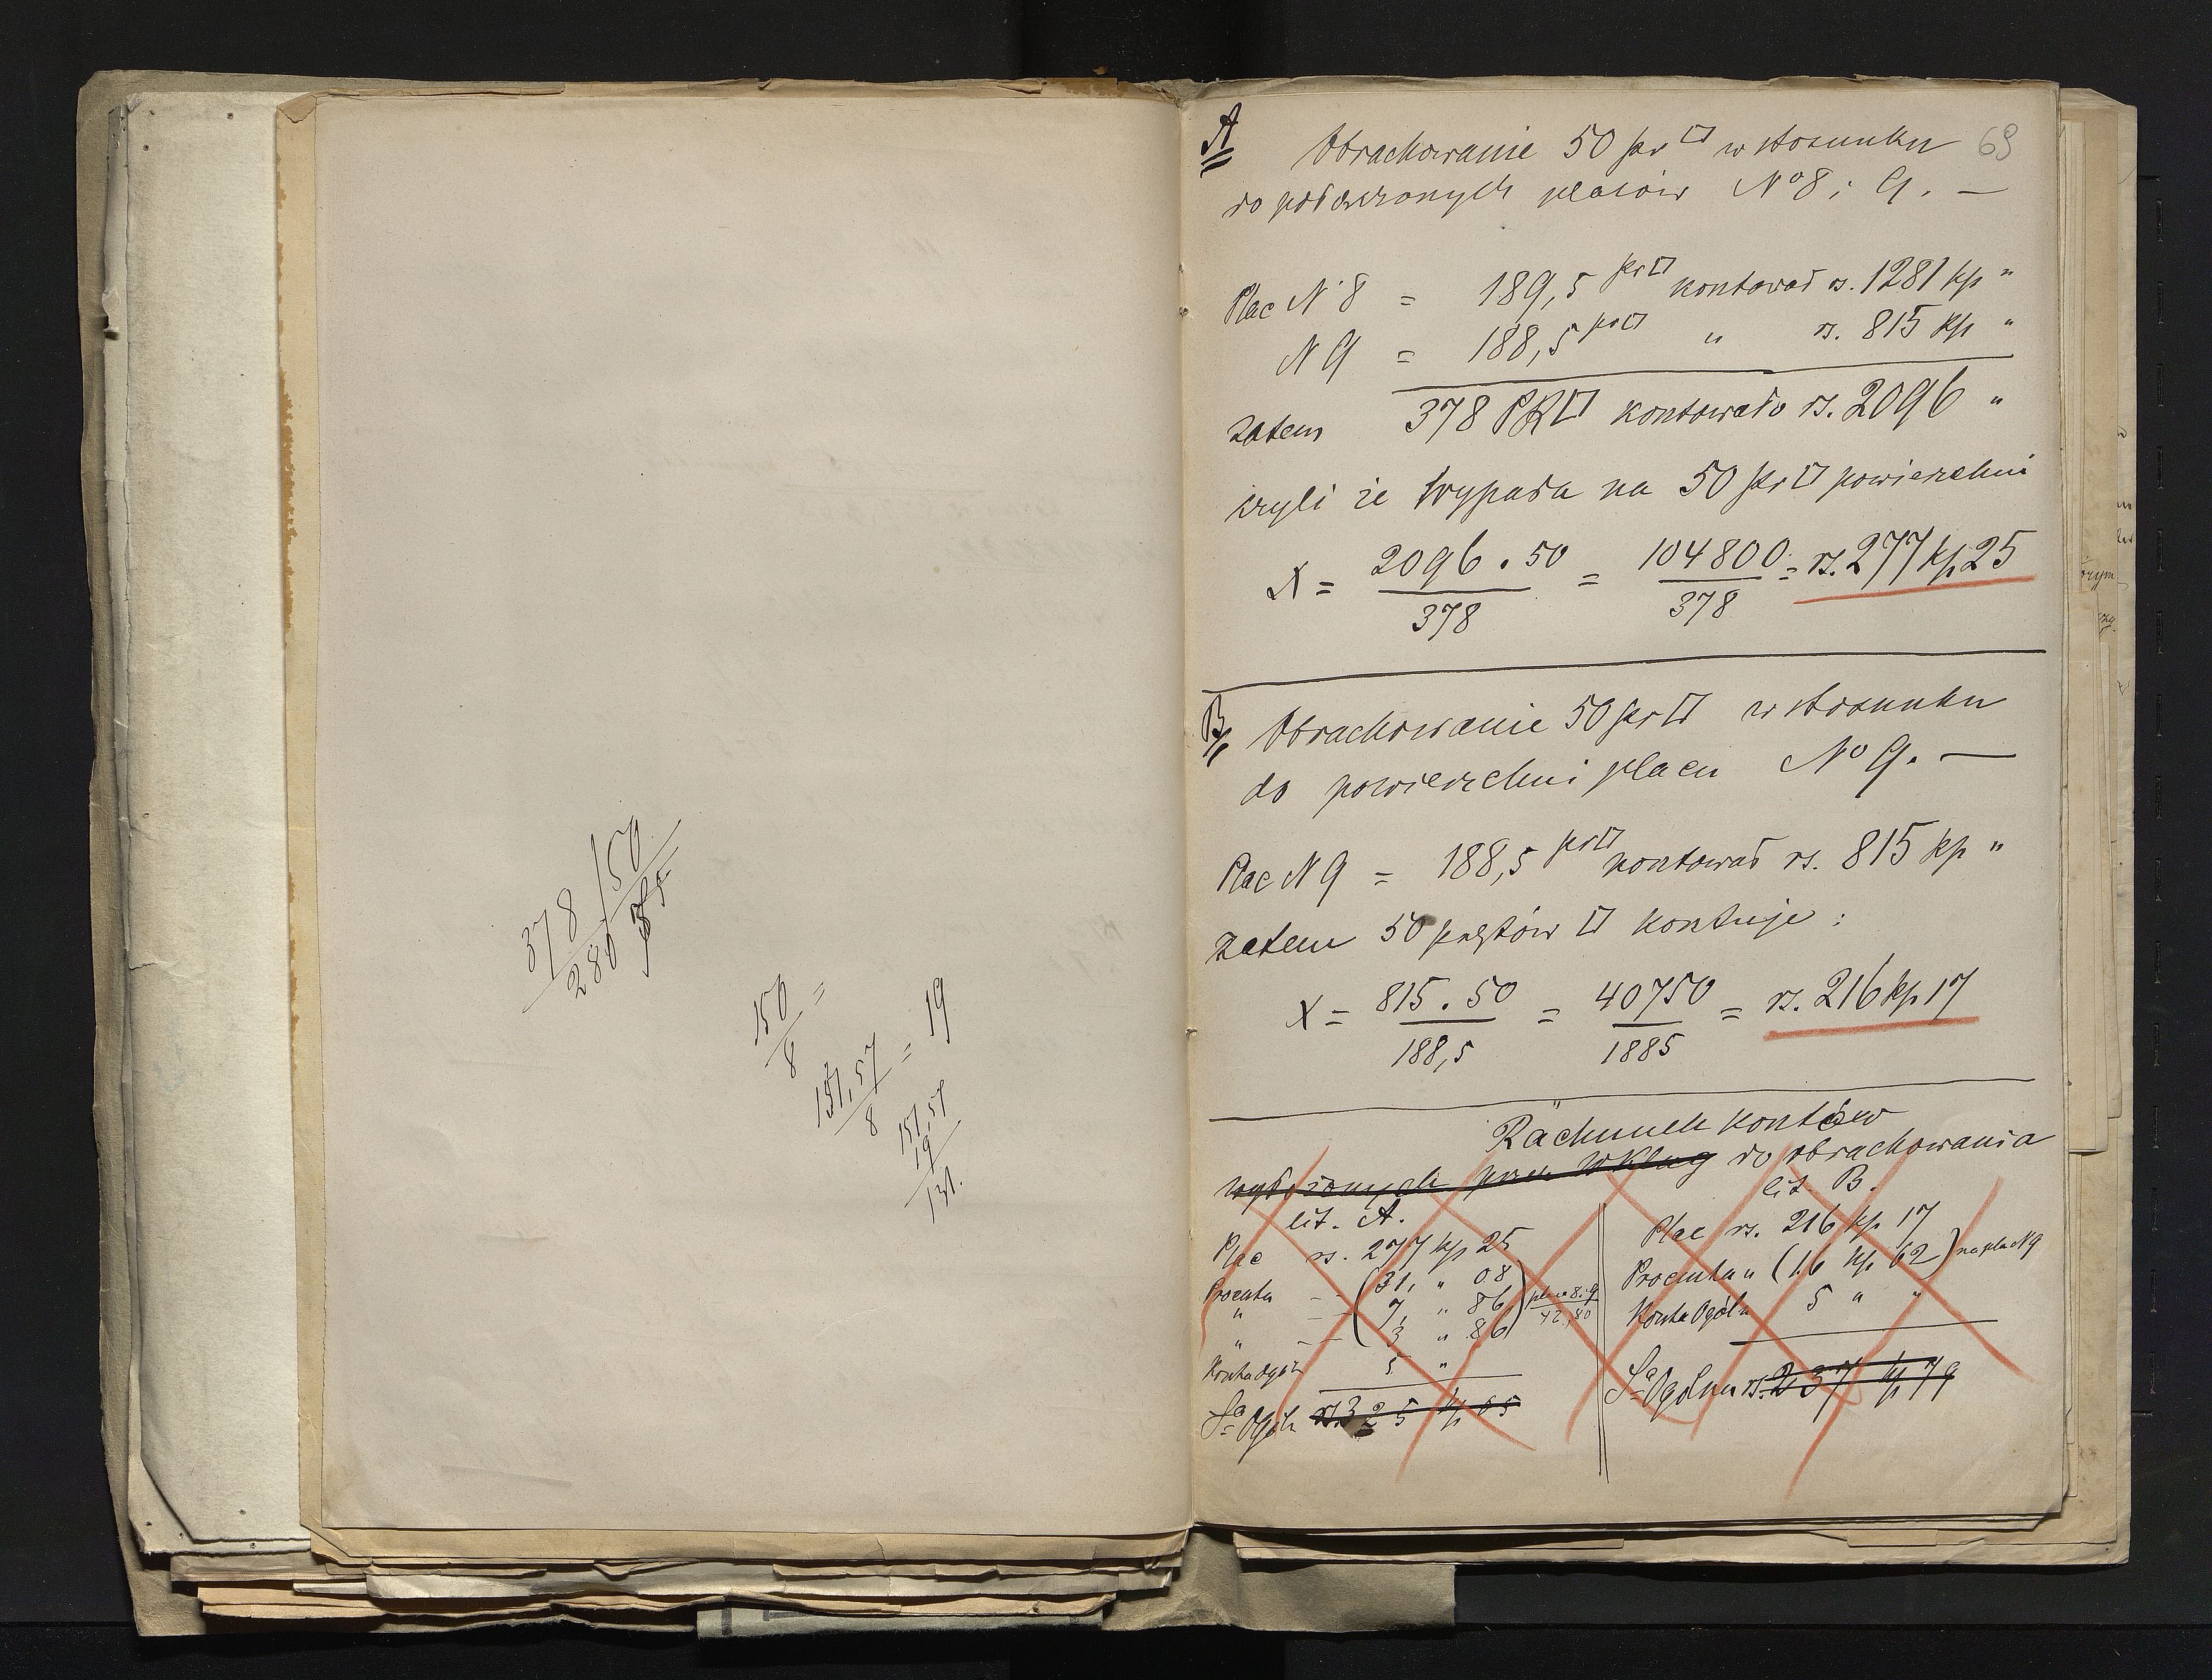 378 / 50
280 75
150 =
8
151,57 = 19
8
151,57
19
131.
A
69
Obrachowanie 50 pr □ w stosunku
do połączonych placów No 8 i 9. —
Plac N 8 = 189,5 pr□ kosztował rs. 1281 kp "
N 9 = 188,5 pr□ " rs. 815 kp "
zatem 378 PR□ kosztowało rs. 2096 "
czyli że wypada na 50 pr □ powierzchni
X = 2096 . 50 / 378 = 104800 / 378 = rs. 277 kp 25
B
Obrachowanie 50 pr □ w stosunku
do powierzchni placu No 9. —
Plac N 9 = 188,5 pr□ kosztował rs. 815 kp "
zatem 50 prętów □ kosztuje :
X = 815 . 50 / 188,5 = 40750 / 1885 = rs. 216 kp 17
Rachunek kosztów
wyłożonych przez do obrachowania
lit. A.
Plac rs. 277 kp 25
Procenta - - (31, " 08
" - - 7, " 86
" - - 3 " 86) plac 8 i 9
42,80
Koszta ogóln 5 "
Sa Ogóln rs. 325 kp 05
lit. B.
Plac rs. 216 kp 17
Procenta " (16 kp 62) na plac N 9
Koszta Ogóln 5 " "
Sa Ogólna rs. 237 kp 79